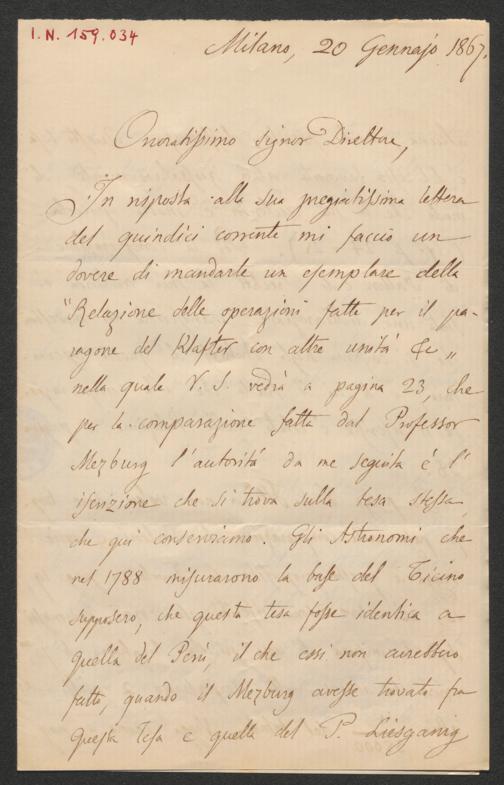 I.N. 159.034
Milano, 20 Gennajo 1867.
Onoratissimo signor Direttore,
In risposta alla sua pregiatissima lettera
del quindici corrente mi faccio un
dovere di mandarle un esemplare della
"Relazione delle operazioni fatte per il pa-
ragone del Klafter con altre unità &c „
nella quale V. S. vedrà a pagina 23, che
per la comparazione fatta dal Professor
Mezburg l'autorità da me seguita è l'
iscrizione che si trova sulla tesa stessa
che qui conserviamo. Gli Astronomi che
nel 1788 misurarono la base del Ticino
supposero, che questa tesa fosse identica a
quella del Perù, il che essi non avrebbero
fatto, quando il Mezburg avesse trovato fra
questa Tesa e quella del P. Liesganig